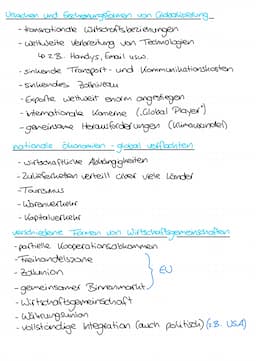 Ursachen und Erscheinungsformen von Globalisierung
- transnationale Wirtschaftsbeziehungen
- weltweite Verbreitung von Technologien
↳ z.B. Handys, Email usw.
- sinkende Transport- und Kommunikationskosten
- sinkendes Zollniveau
- Exporte weltweit enorm angestiegen
- internationale Konzerne („Global Player“)
- gemeinsame Herausforderungen (Klimawandel)
nationale Ökonomien - global verflochten
- wirtschaftliche Abhängigkeiten
- Zulieferketten verteilt über viele Länder
- Tourismus
- Warenverkehr
- Kapitalverkehr
verschiedene Formen von Wirtschaftsgemeinschaften
- partielle Kooperationsabkommen
- Freihandelszone
- Zollunion
- gemeinsamer Binnenmarkt
EU
- Wirtschaftsgemeinschaft
- Währungsunion
- vollständige Integration (auch politisch) (z.B. USA)